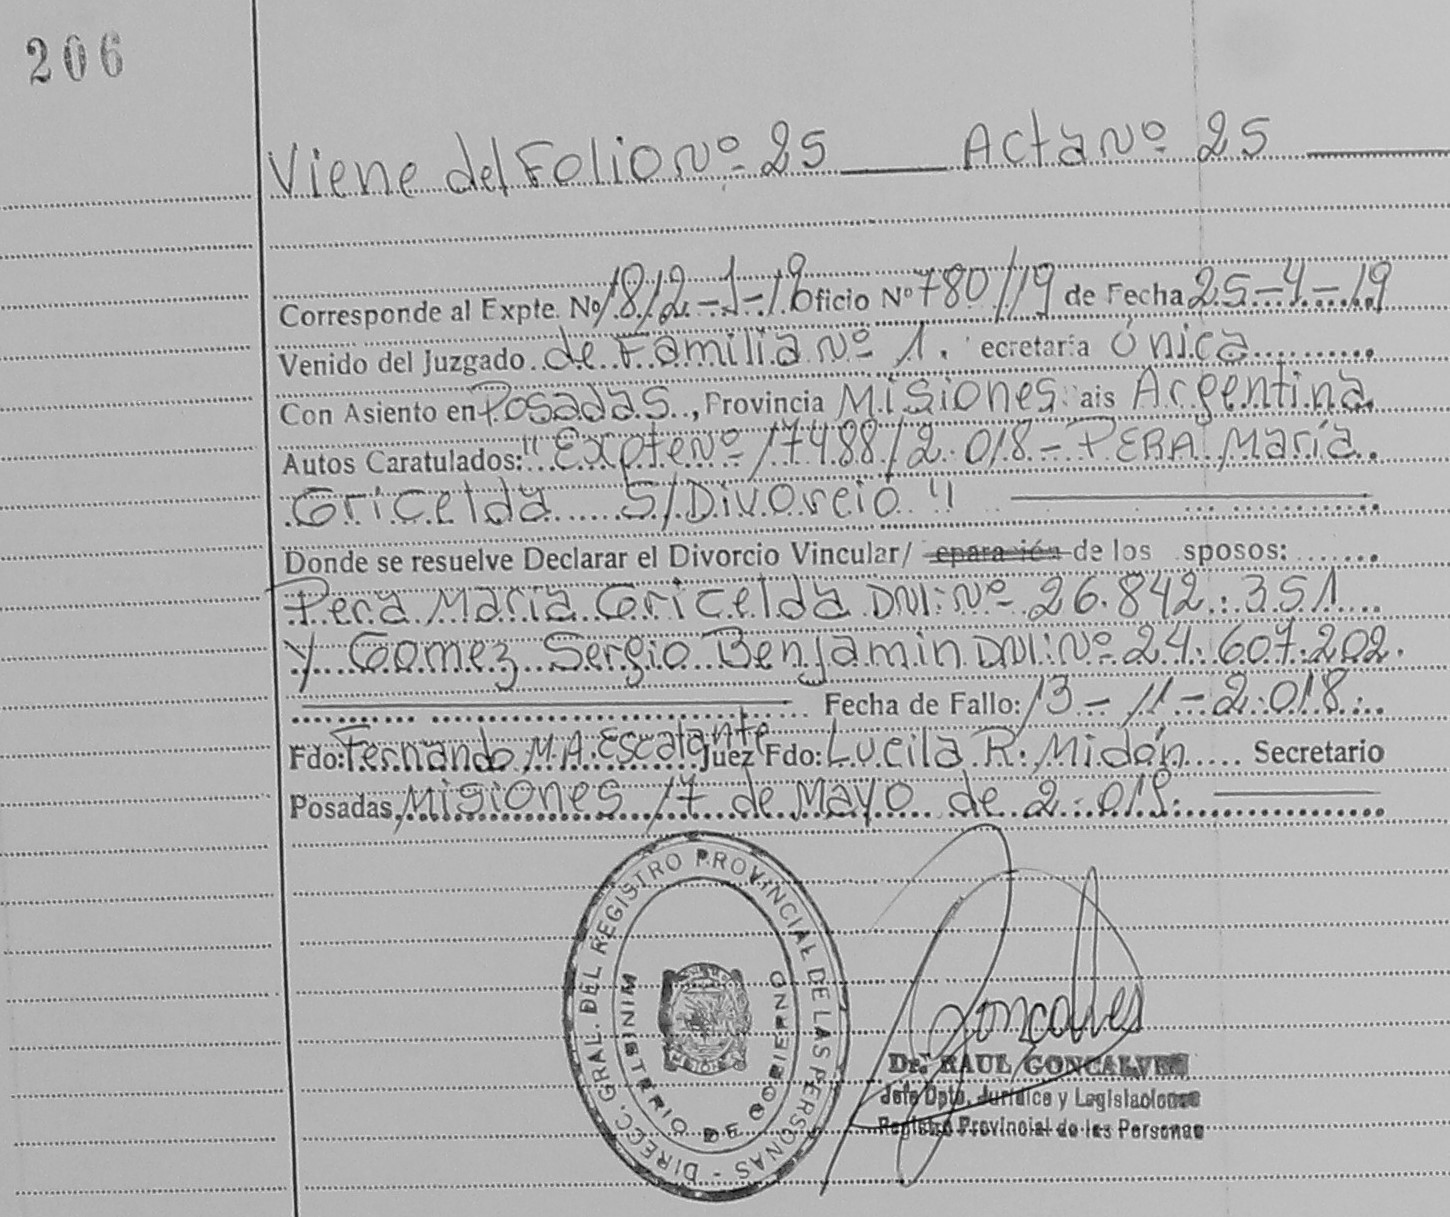 206
Viene del Folio Nº 25 ____ Acta Nº 25 ____
Corresponde al Expte. Nº 1812-J-19 oficio Nº 780/19 de Fecha 25-4-19
Venido del Juzgado de Familia Nº 1. ecretaria Única
Con Asiento en Posadas, Provincia Misiones ais Argentina
Autos Caratulados: "Expte Nº 17488/2018 - PERA María
Gricelda S/Divorcio"
Donde se resuelve Declarar el Divorcio Vincular/ eparación de los sposos:
Pera María Gricelda DNI: Nº 26.842.351
Y Gomez Sergio Benjamin DNI: Nº 24.607.202.
Fecha de Fallo: 13-11-2018.
Fdo: Fernando M.A. Escalante Juez Fdo: Lucila R. Midón Secretario
Posadas, Misiones 17 de Mayo de 2.019.
DIRECC. GRAL. DEL REGISTRO PROVINCIAL DE LAS PERSONAS -
MINISTERIO DE GOBIERNO
Goncalves
Dr. RAUL GONCALVES
Jefe Dpto. Jurídico y Legislaciones
Registro Provincial de las Personas